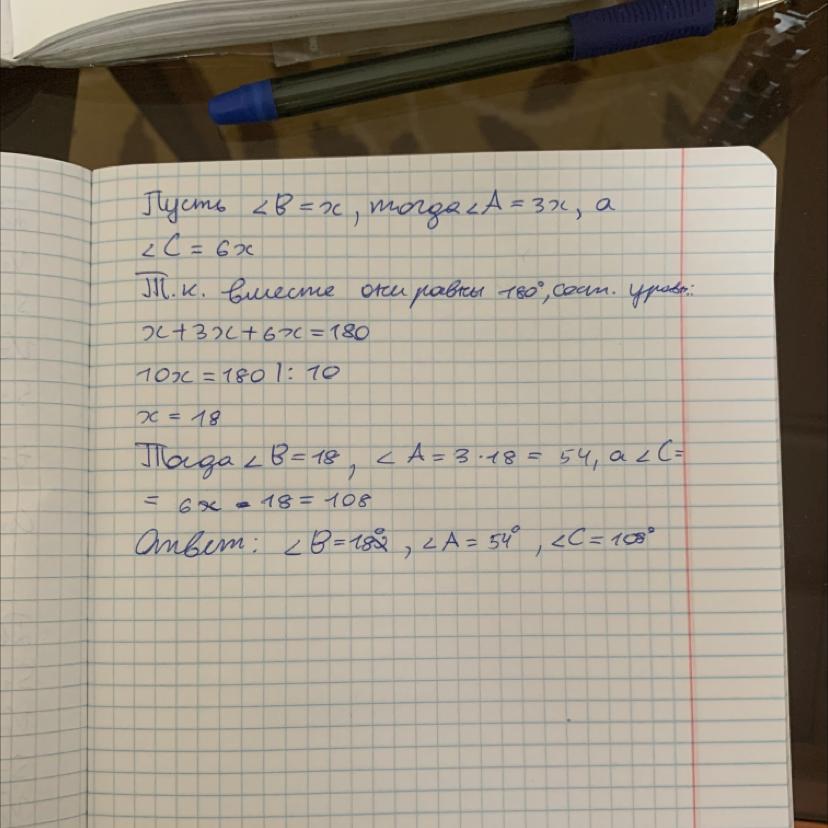 Пусть ∠B = x, тогда ∠A = 3x, а
∠C = 6x
Т.к. вместе они равны 180°, сост. уравн.:
x + 3x + 6x = 180
10x = 180 |: 10
x = 18
Тогда ∠B = 18, ∠A = 3 · 18 = 54, а ∠C =
= 6 · 18 = 108
Ответ: ∠B = 18°, ∠A = 54°, ∠C = 108°